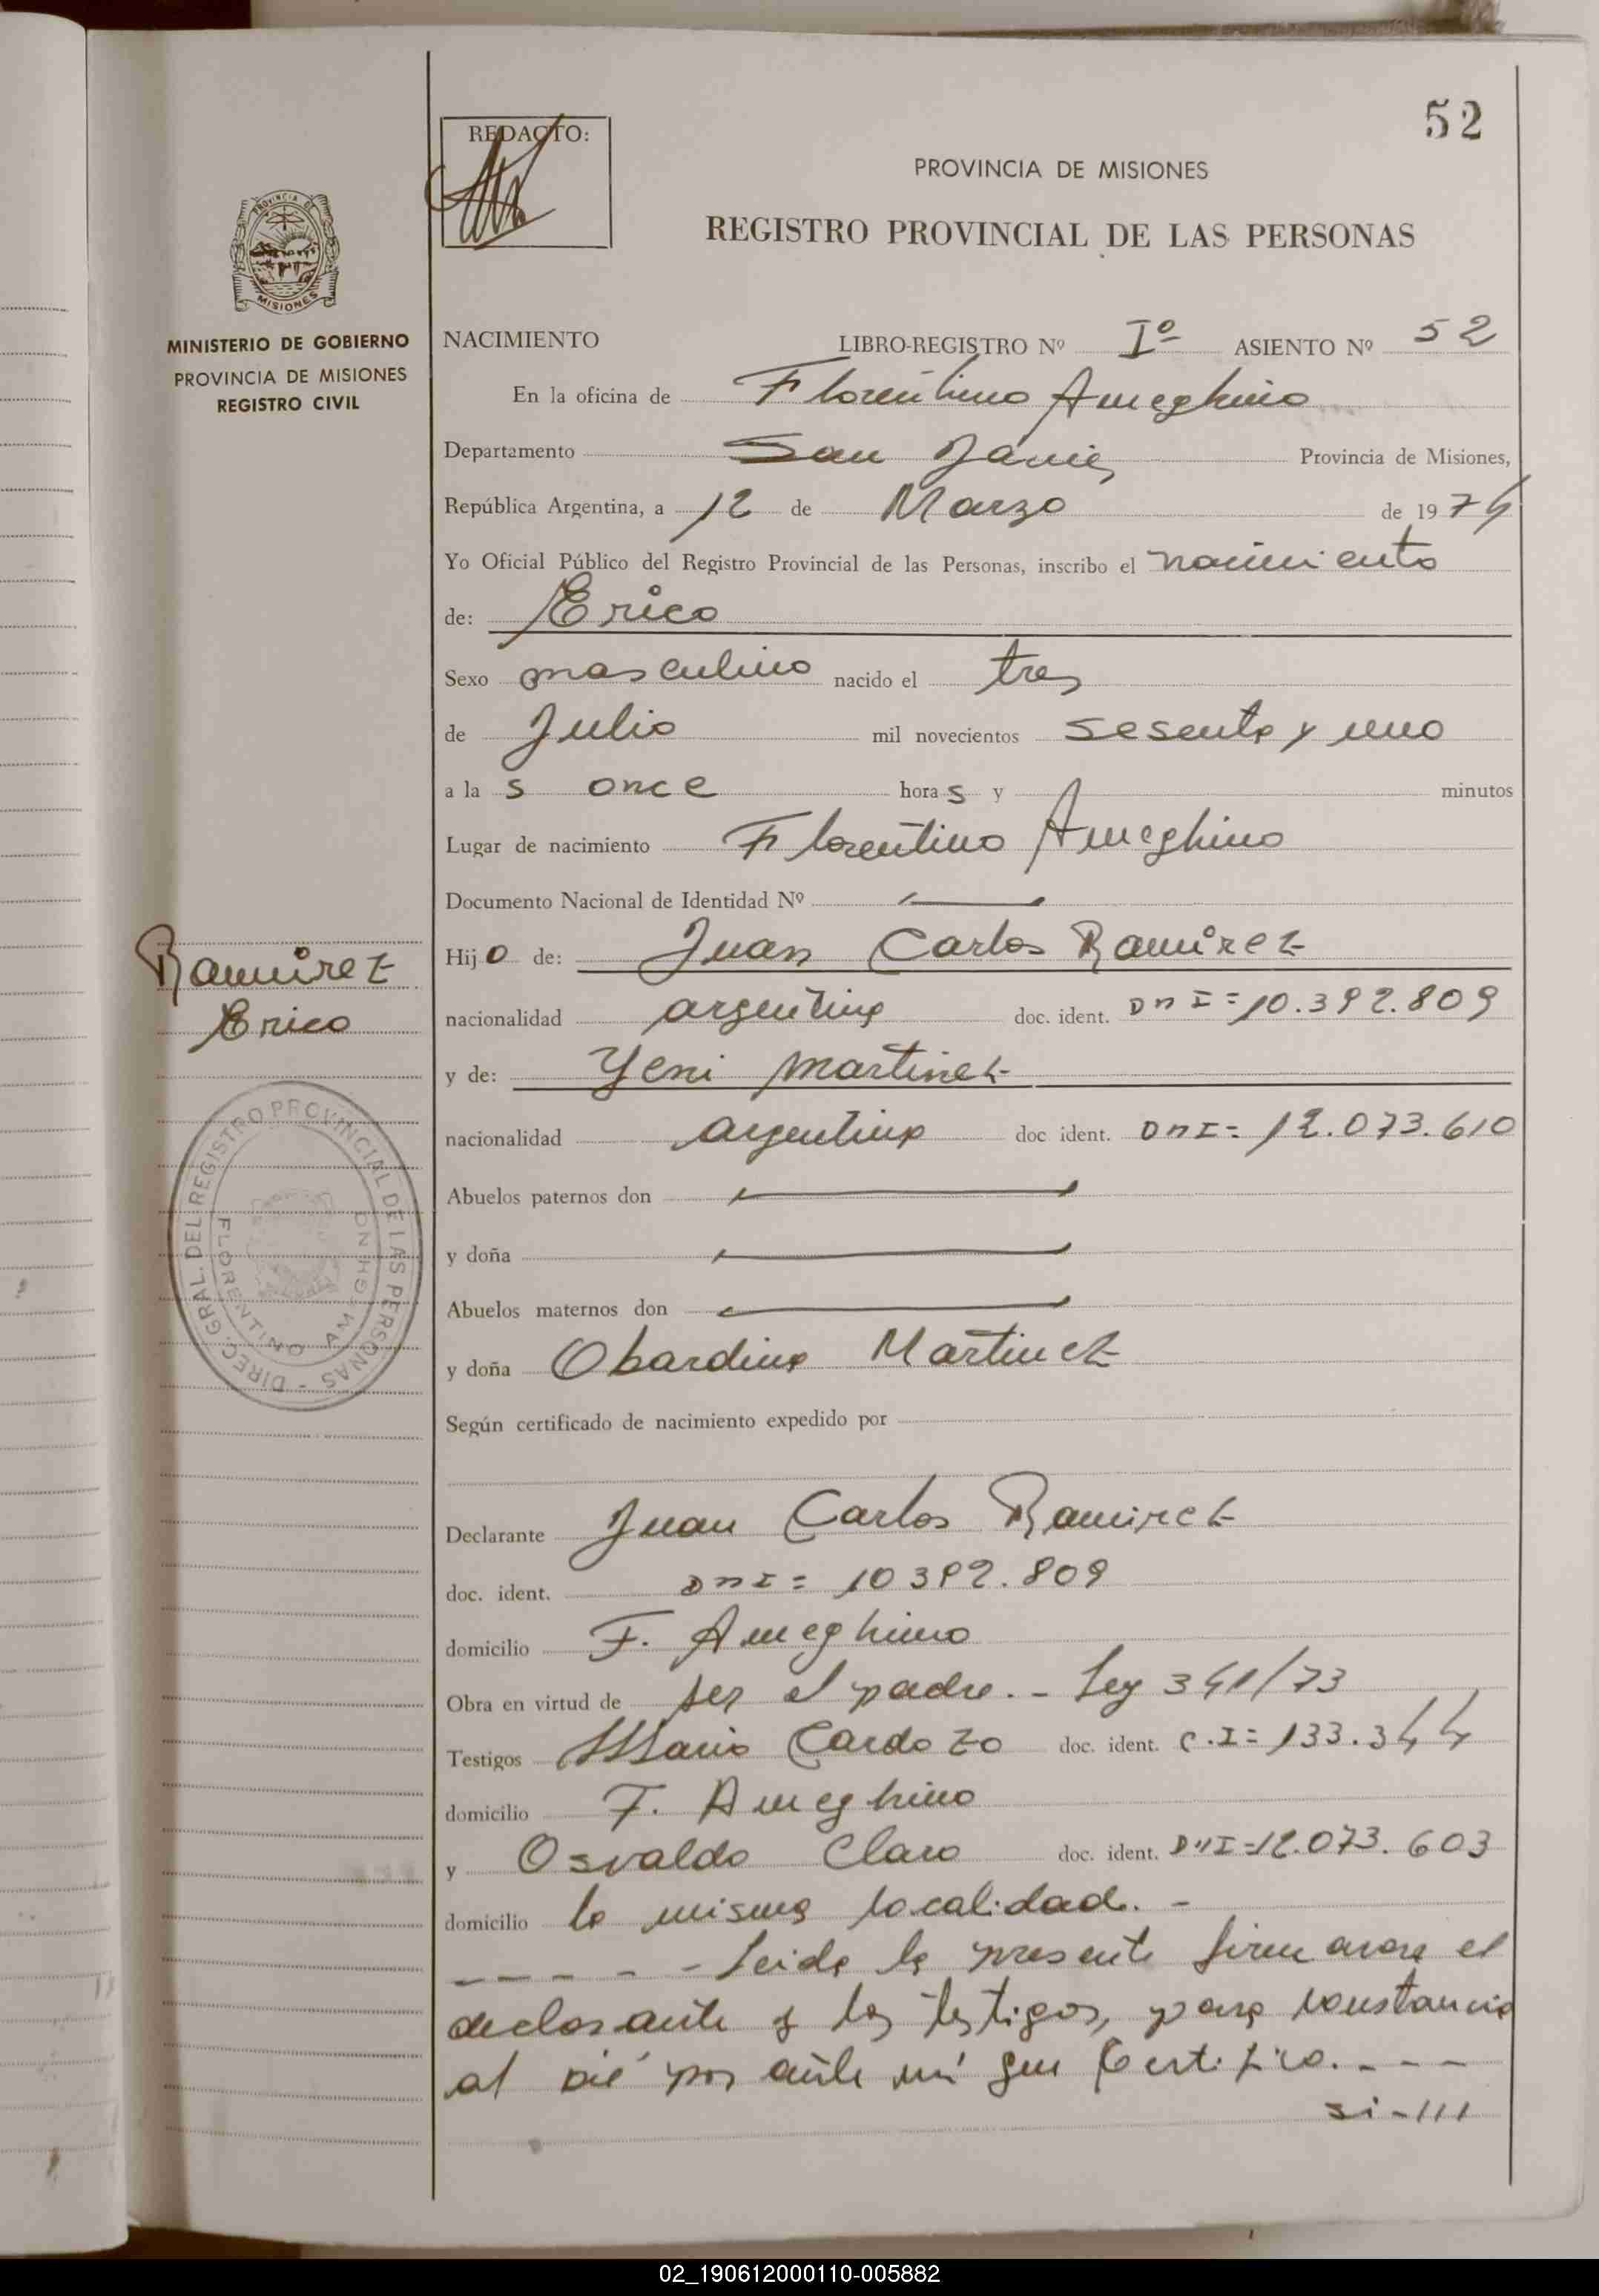 52
REDACTO:
PROVINCIA DE MISIONES
REGISTRO PROVINCIAL DE LAS PERSONAS
PROVINCIA DE MISIONES
MINISTERIO DE GOBIERNO
PROVINCIA DE MISIONES
REGISTRO CIVIL
NACIMIENTO LIBRO-REGISTRO Nº Iº ASIENTO Nº 52
En la oficina de Florentino Ameghino
Departamento San Javier Provincia de Misiones,
República Argentina, a 12 de Marzo de 1974
Yo Oficial Público del Registro Provincial de las Personas, inscribo el nacimiento
de: Erico
Sexo masculino nacido el tres
de Julio mil novecientos sesenta y uno
a la s once hora s y minutos
Lugar de nacimiento Florentino Ameghino
Documento Nacional de Identidad Nº
Ramirez
Erico
Hijo de: Juan Carlos Ramirez
nacionalidad argentina doc. ident. DNI= 10.392.809
y de: Yeni Martinez
nacionalidad argentina doc ident. DNI= 12.073.610
Abuelos paternos don
y doña
Abuelos maternos don
y doña Obardina Martinez
DIREC. GRAL. DEL REGISTRO PROVINCIAL DE LAS PERSONAS -
FLORENTINO AMEGHINO
Según certificado de nacimiento expedido por
Declarante Juan Carlos Ramirez
doc. ident. DNI= 10 392.809
domicilio F. Ameghino
Obra en virtud de ser el padre. - Ley 341/73
Testigos Mario Cardozo doc. ident. C.I= 133.344
domicilio F. Ameghino
y Osvaldo Claro doc. ident. DNI=12.073.603
domicilio la misma localidad. -
- - - - - Leida la presente firmaron el
declarante y los testigos, para constancia
al pié por ante mi que Certifico. - - -
si-///
02_190612000110-005882